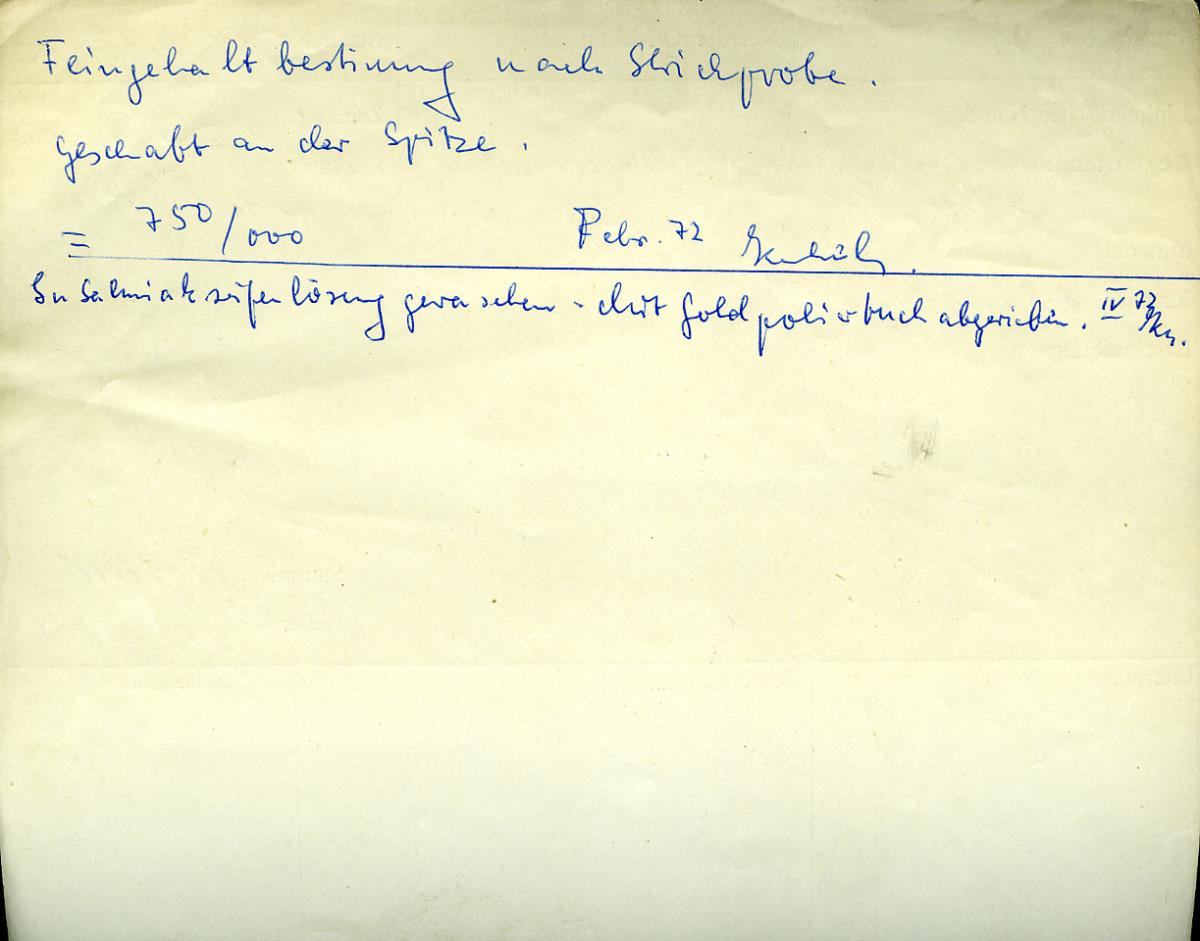 Feingehaltbestimung nach Strichprobe.
geschabt an der Spitze.
= 750/000 Febr. 72
In Salmiakseifenlösung gewaschen - Mit Goldpoliertuch abgerieben. IV 72